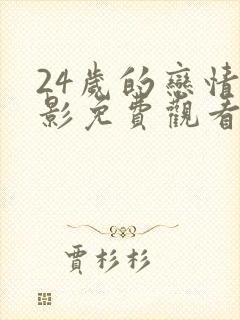 24歲的戀情
影免費觀看
賈杉杉